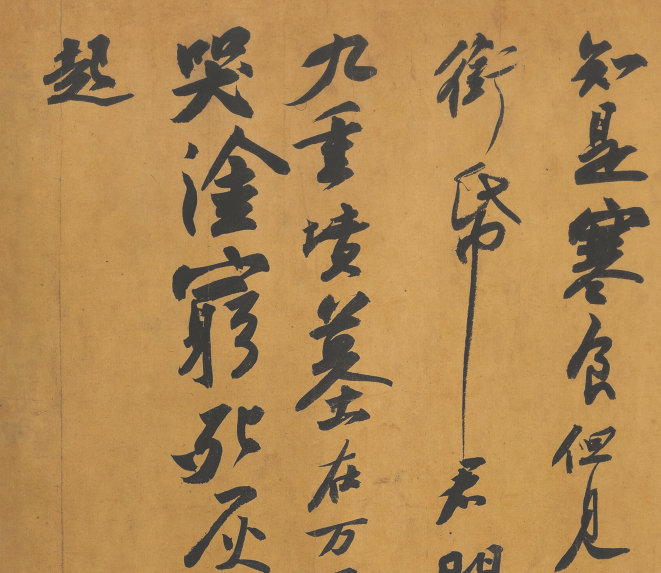 知是寒食但見
衘帋君
九重墳墓在万
哭塗窮死灰
起